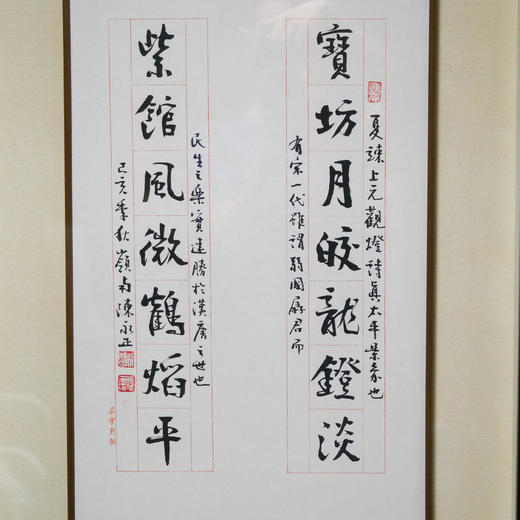 寶坊月皎龍鐙淡
夏竦上元觀燈詩真太平景象也
有宋一代雖謂弱國孱君而
紫館風微鶴焰平
民生之樂實遠勝於漢唐之世也
己亥季秋嶺南陳永正